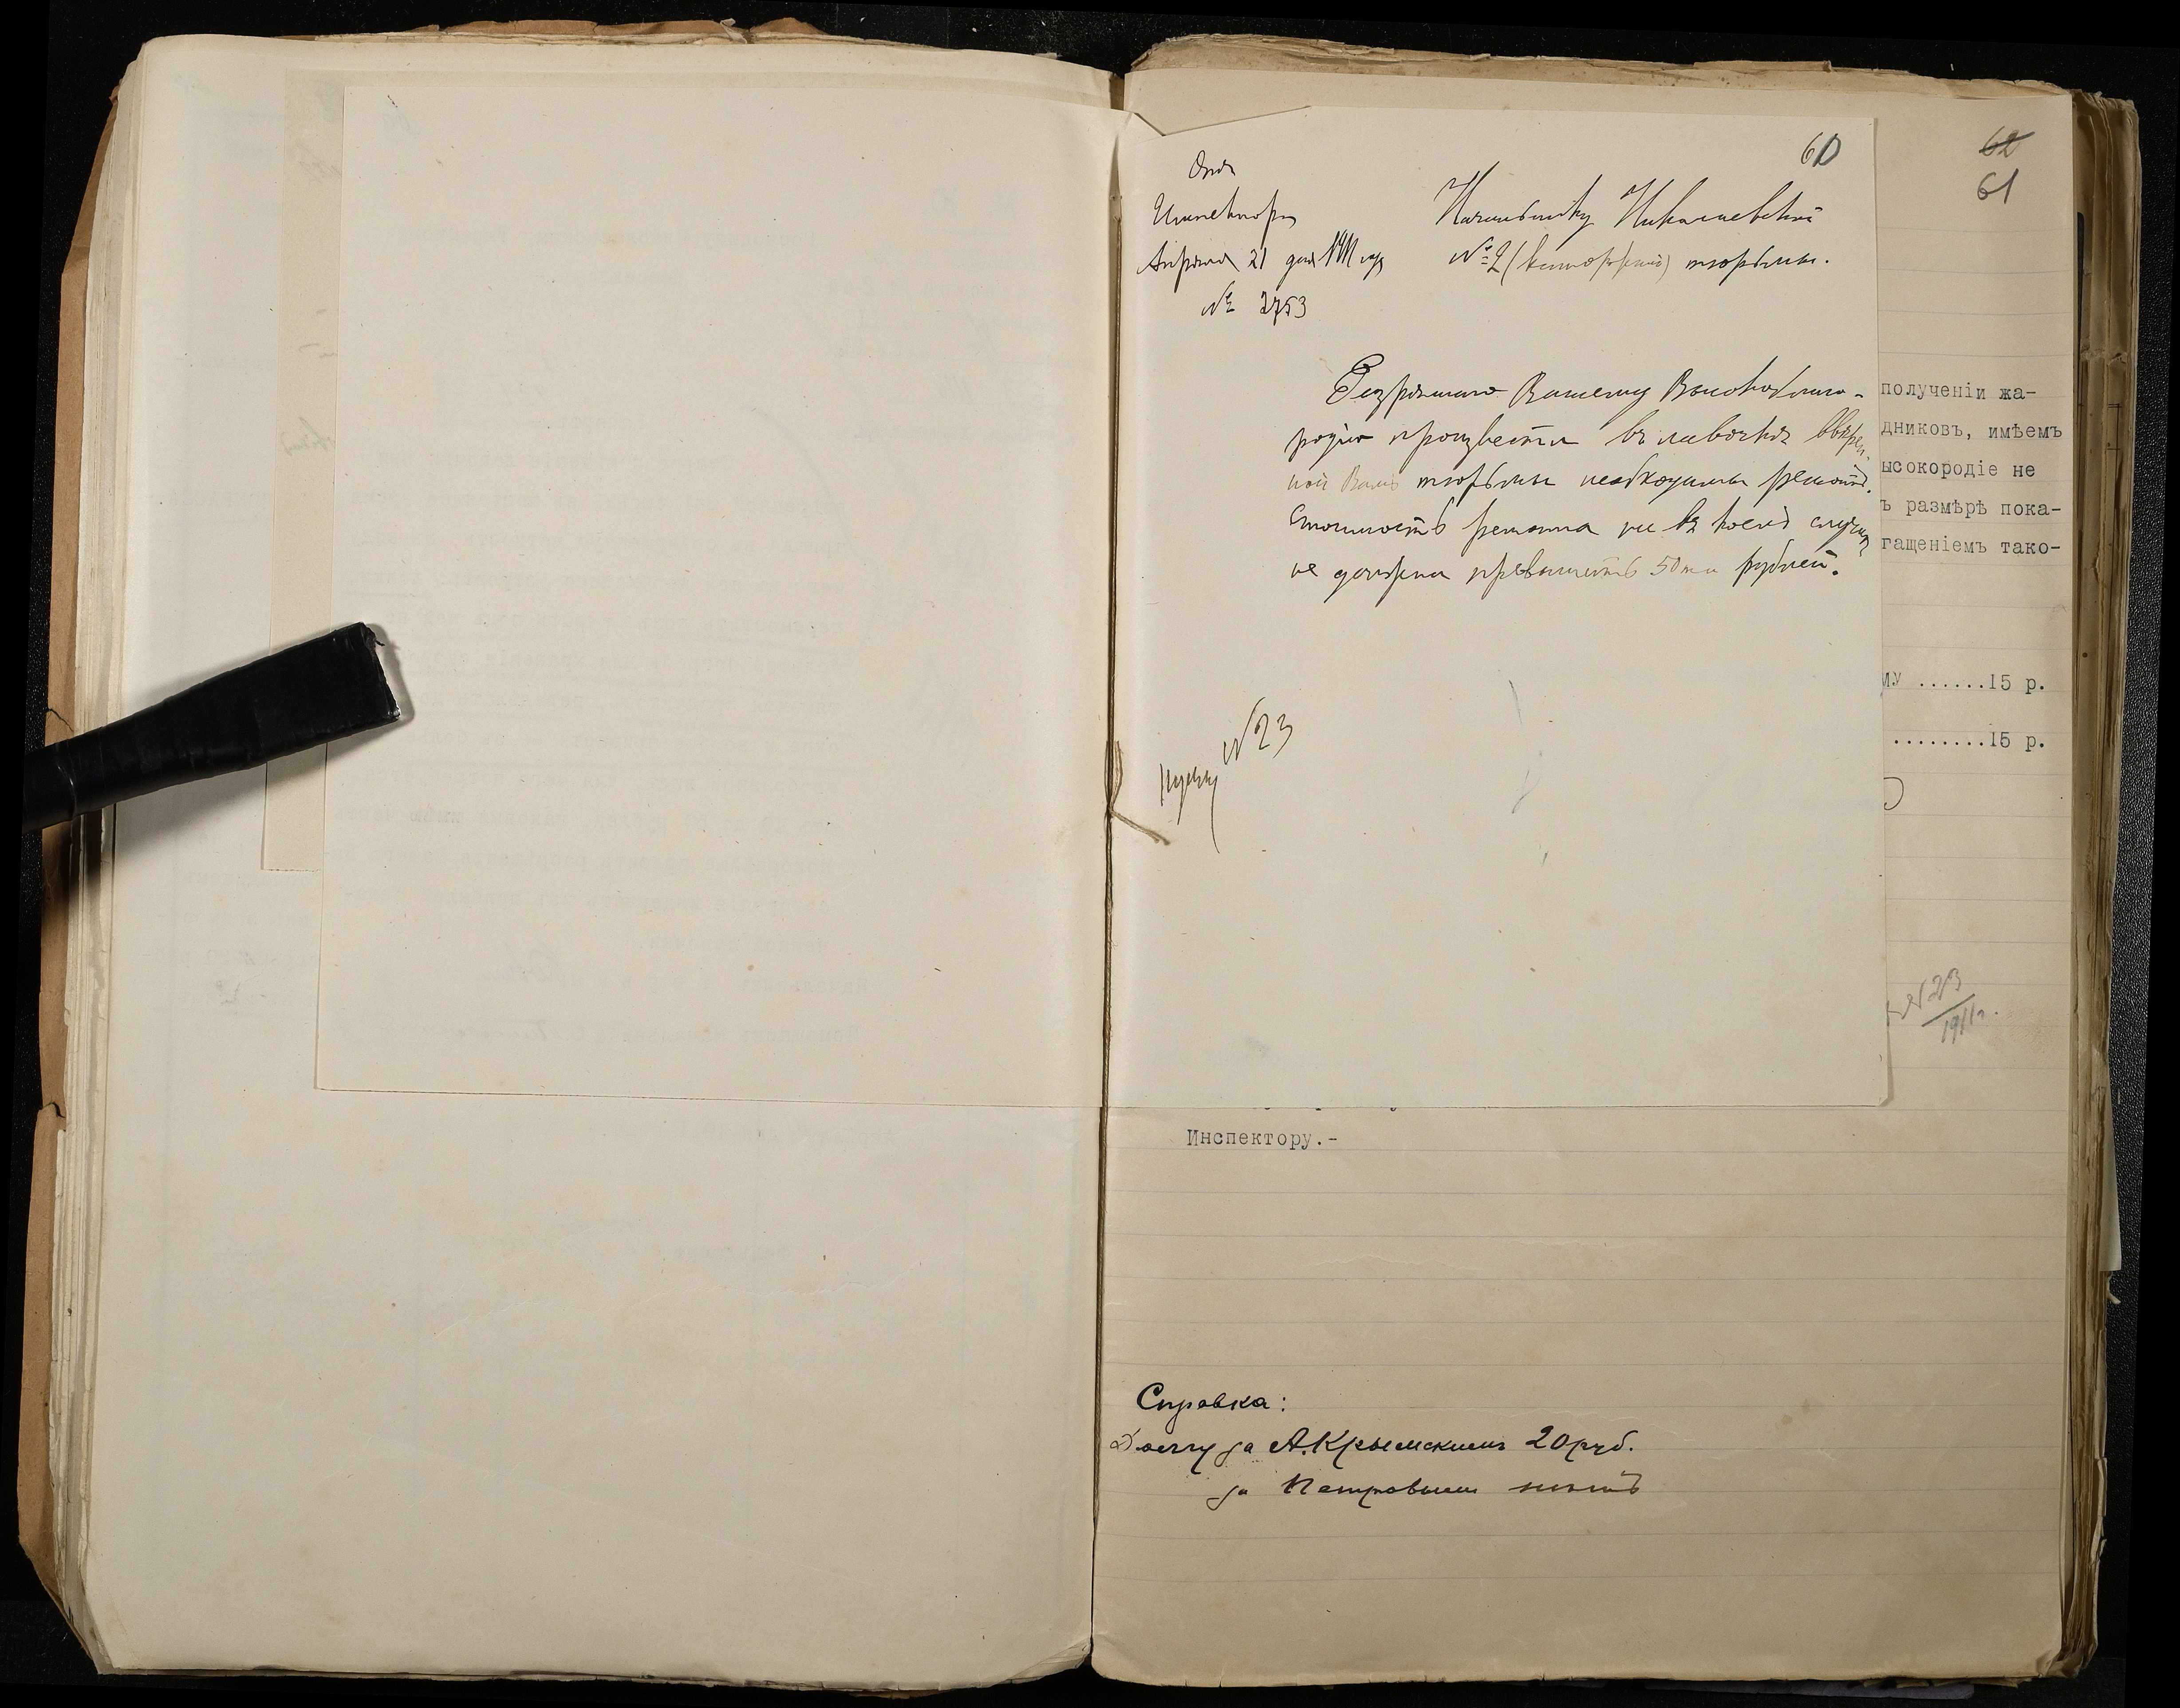 60
Отд.
Инспектора
Апрѣля 21 дня 1911 года
№ 2753
Начальнику Николаевской
№ 2 (каторжной) тюрьмы.
Разрѣшаю Вашему Высокобlаго-
родію произвести въ лавочкѣ ввѣрен-
ной Вамъ тюрьмы необходимый ремонтъ.
Стоимость ремонта ни въ коемъ случаѣ
не должна превышать 50ти рублей.
№ 23
62
61
полученіи жа-
дниковъ, имѣемъ
ысокородіе не
ъ размѣрѣ пока-
гащеніемъ тако-
му ......15 р.
........15 р.
№ 23
1911 г.
Инспектору.-
Справка:
Долгу за А. Крымскимъ 20 руб.
за Петровымъ нѣтъ